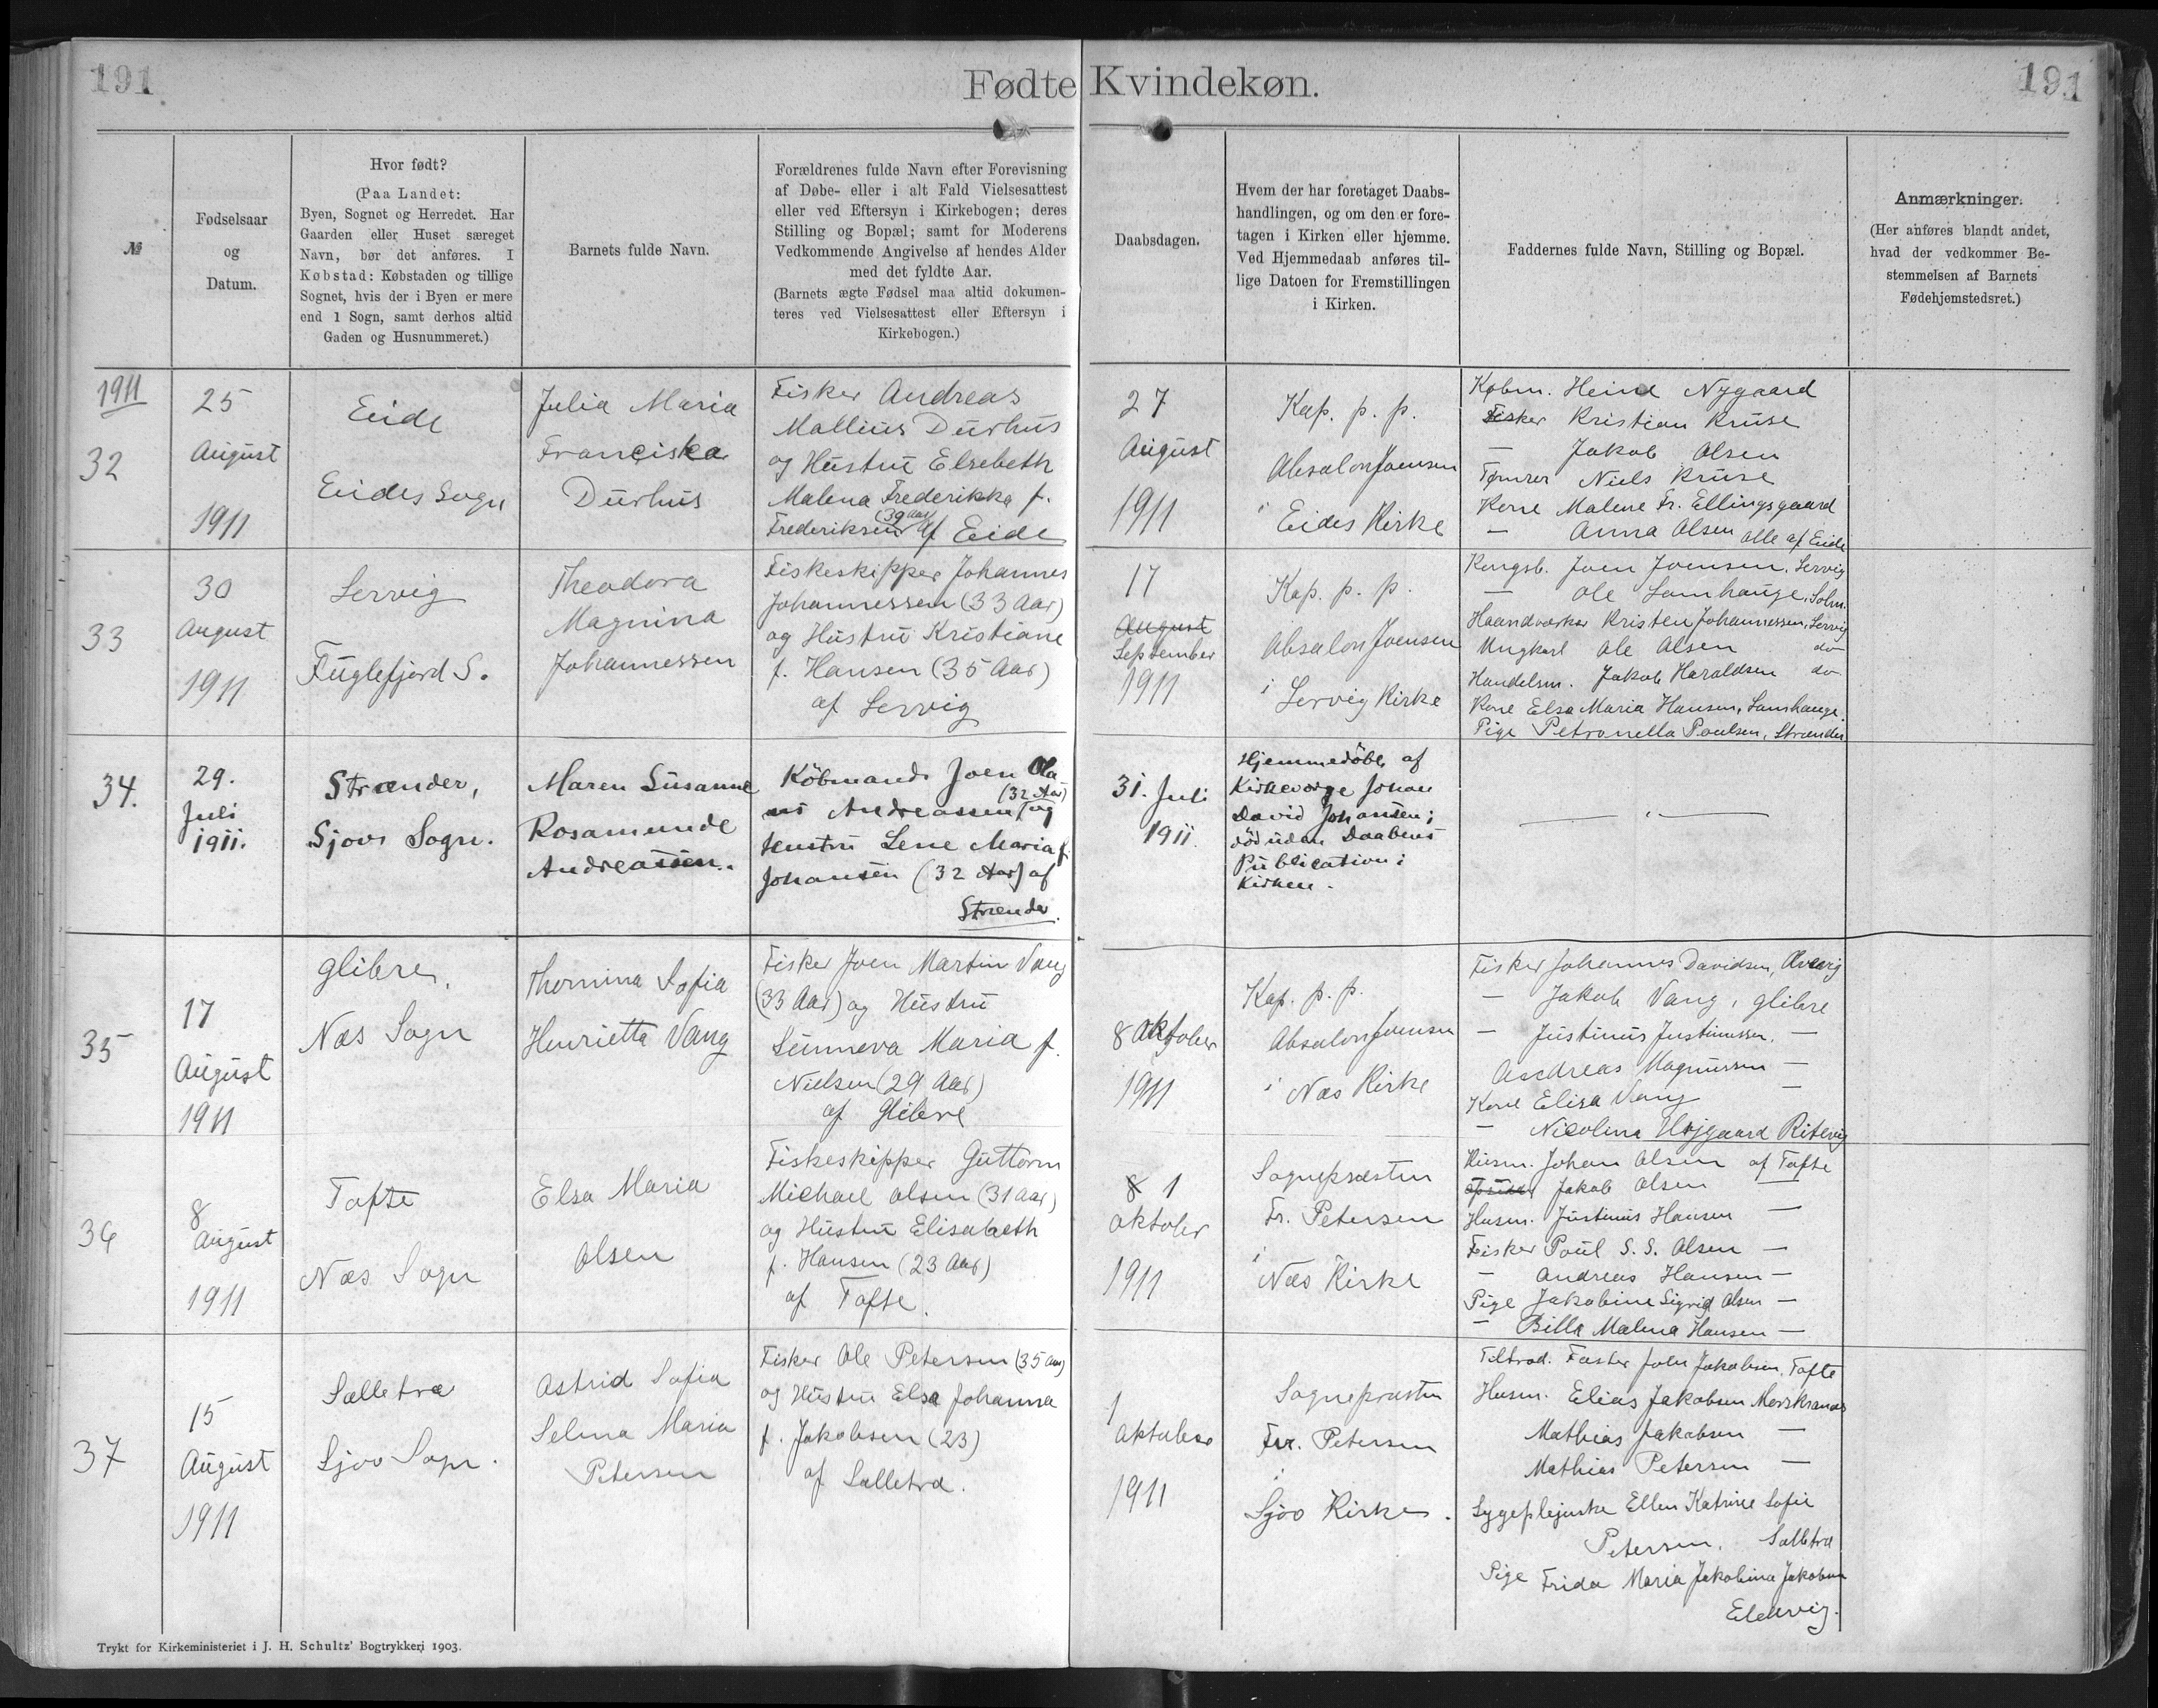 191
Fødte Kvindekøn.
191
№
Fødselsaar
og
Datum.
Hvor født?
(Paa Landet:
Byen, Sognet og Herredet. Har
Gaarden eller Huset særeget
Navn, bør det anføres. I
Købstad: Købstaden og tillige
Sognet, hvis der i Byen er mere
end 1 Sogn, samt derhos altid
Gaden og Husnummeret.)
Barnets fulde Navn.
Forældrenes fulde Navn efter Forevisning
af Døbe- eller i alt Fald Vielsesattest
eller ved Eftersyn i Kirkebogen; deres
Stilling og Bopæl; samt for Moderens
Vedkommende Angivelse af hendes Alder
med det fyldte Aar.
(Barnets ægte Fødsel maa altid dokumen-
teres ved Vielsesattest eller Eftersyn i
Kirkebogen.)
Daabsdagen.
Hvem der har foretaget Daabs-
handlingen, og om den er fore-
tagen i Kirken eller hjemme.
Ved Hjemmedaab anføres til-
lige Datoen for Fremstillingen
i Kirken.
Faddernes fulde Navn, Stilling og Bopæl.
Anmærkninger.
(Her anføres blandt andet,
hvad der vedkommer Be-
stemmelsen af Barnets
Fødehjemstedsret.)
1911
32
25
August
1911
Eide
Eides Sogn
Julia Maria
Franciska
Durhus
Fisker Andreas
Mallius Durhus
og Hustru Elsebeth
Malena Frederikka f.
(39 Aar)
Frederiksen af Eide
27
August
1911
Kap. p. p.
Absalon Joensen
i Eides Kirke
Købm. Heine Nygaard
Fisker Kristian Kruse
— Jakob Olsen
Tømrer Niels Kruse
Kone Malene Fr. Ellingsgaard
— Anna Olsen alle af Eide
33
30
August
1911
Lervig
Fuglefjord S.
Theodora
Magnina
Johannessen
Fiskeskipper Johannes
Johannessen (33 Aar)
og Hustru Kristiane
f. Hansen (35 Aar)
af Lervig
17
August
September
1911
Kap. p. p.
Absalon Joensen
i Lervig Kirke
Kongsb. Joen Joensen, Lervig
— Ole Lamhauge, Solm.
Haandværker Kristen Johannessen, Lervig
Ungkarl Ole Olsen do
Handelsm. Jakob Haraldsen do
Kone Elsa Maria Hansen, Lamhauge.
Pige Petronella Poulsen, Strænder
34.
29.
Juli
1911.
Strænder,
Sjovs Sogn.
Maren Susanne
Rosamunde
Andreassen.
Köbmand Joen Ola-
(32 Aar)
us Andreassen og
Hustru Lene Maria f.
Johansen (32 Aar) af
Strænder.
31. Juli
1911.
Hjemmedöbt af
Kirkeværge Johan
David Johansen;
död uden Daabens
Publication i
Kirken.
35
17
August
1911
Glibre,
Næs Sogn
Thomina Sofia
Henrietta Vang
Fisker Joen Martin Vang
(33 Aar) og Hustru
Sunneva Maria f.
Nielsen (29 Aar)
af Glibre
8 Oktober
1911
Kap. p. p.
Absalon Joensen
i Næs Kirke
Fisker Johannes Davidsen,
— Jakob Vang, Glibre
— Justinus Justinussen. —
Andreas Magnussen —
Kone Elisa Vang —
— Nicolina Højgaard Ritevig
36
8
August
1911
Tofte
Næs Sogn
Elsa Maria
Olsen
Fiskeskipper Guttorm
Michael Olsen (31 Aar)
og Hustru Elisabeth
f. Hansen (23 Aar)
af Tofte.
8 1
Oktober
1911
Sognepræsten
Fr. Petersen
i
Næs Kirke
Husm. Johan Olsen af Tofte
Jakob Olsen —
Husm. Justinus Hansen —
Fisker Poul S. S. Olsen —
— Andreas Hansen —
Pige Jakobine Sigrid Olsen —
— Billa Malena Hansen —
37
15
August
1911
Salletræ
Sjov Sogn.
Astrid Sofia
Selma Maria
Petersen
Fisker Ole Petersen (35 Aar)
og Hustru Elsa Johanna
f. Jakobsen (23)
af Salletræ.
1
Oktober
1911
Sognepræsten
Fr. Petersen
i
Sjov Kirke.
Joen Jakobsen, Tofte
Husm. Elias Jakobsen Morskranes
Mathias Jakobsen —
Mathias Petersen —
Sygeplejerske Ellen Katrine Sofie
Petersen. Salletræ
Pige Frida Maria Jakobina Jakobsen
Eldevig.
Trykt for Kirkeministeriet i J. H. Schultz' Bogtrykkeri 1903.